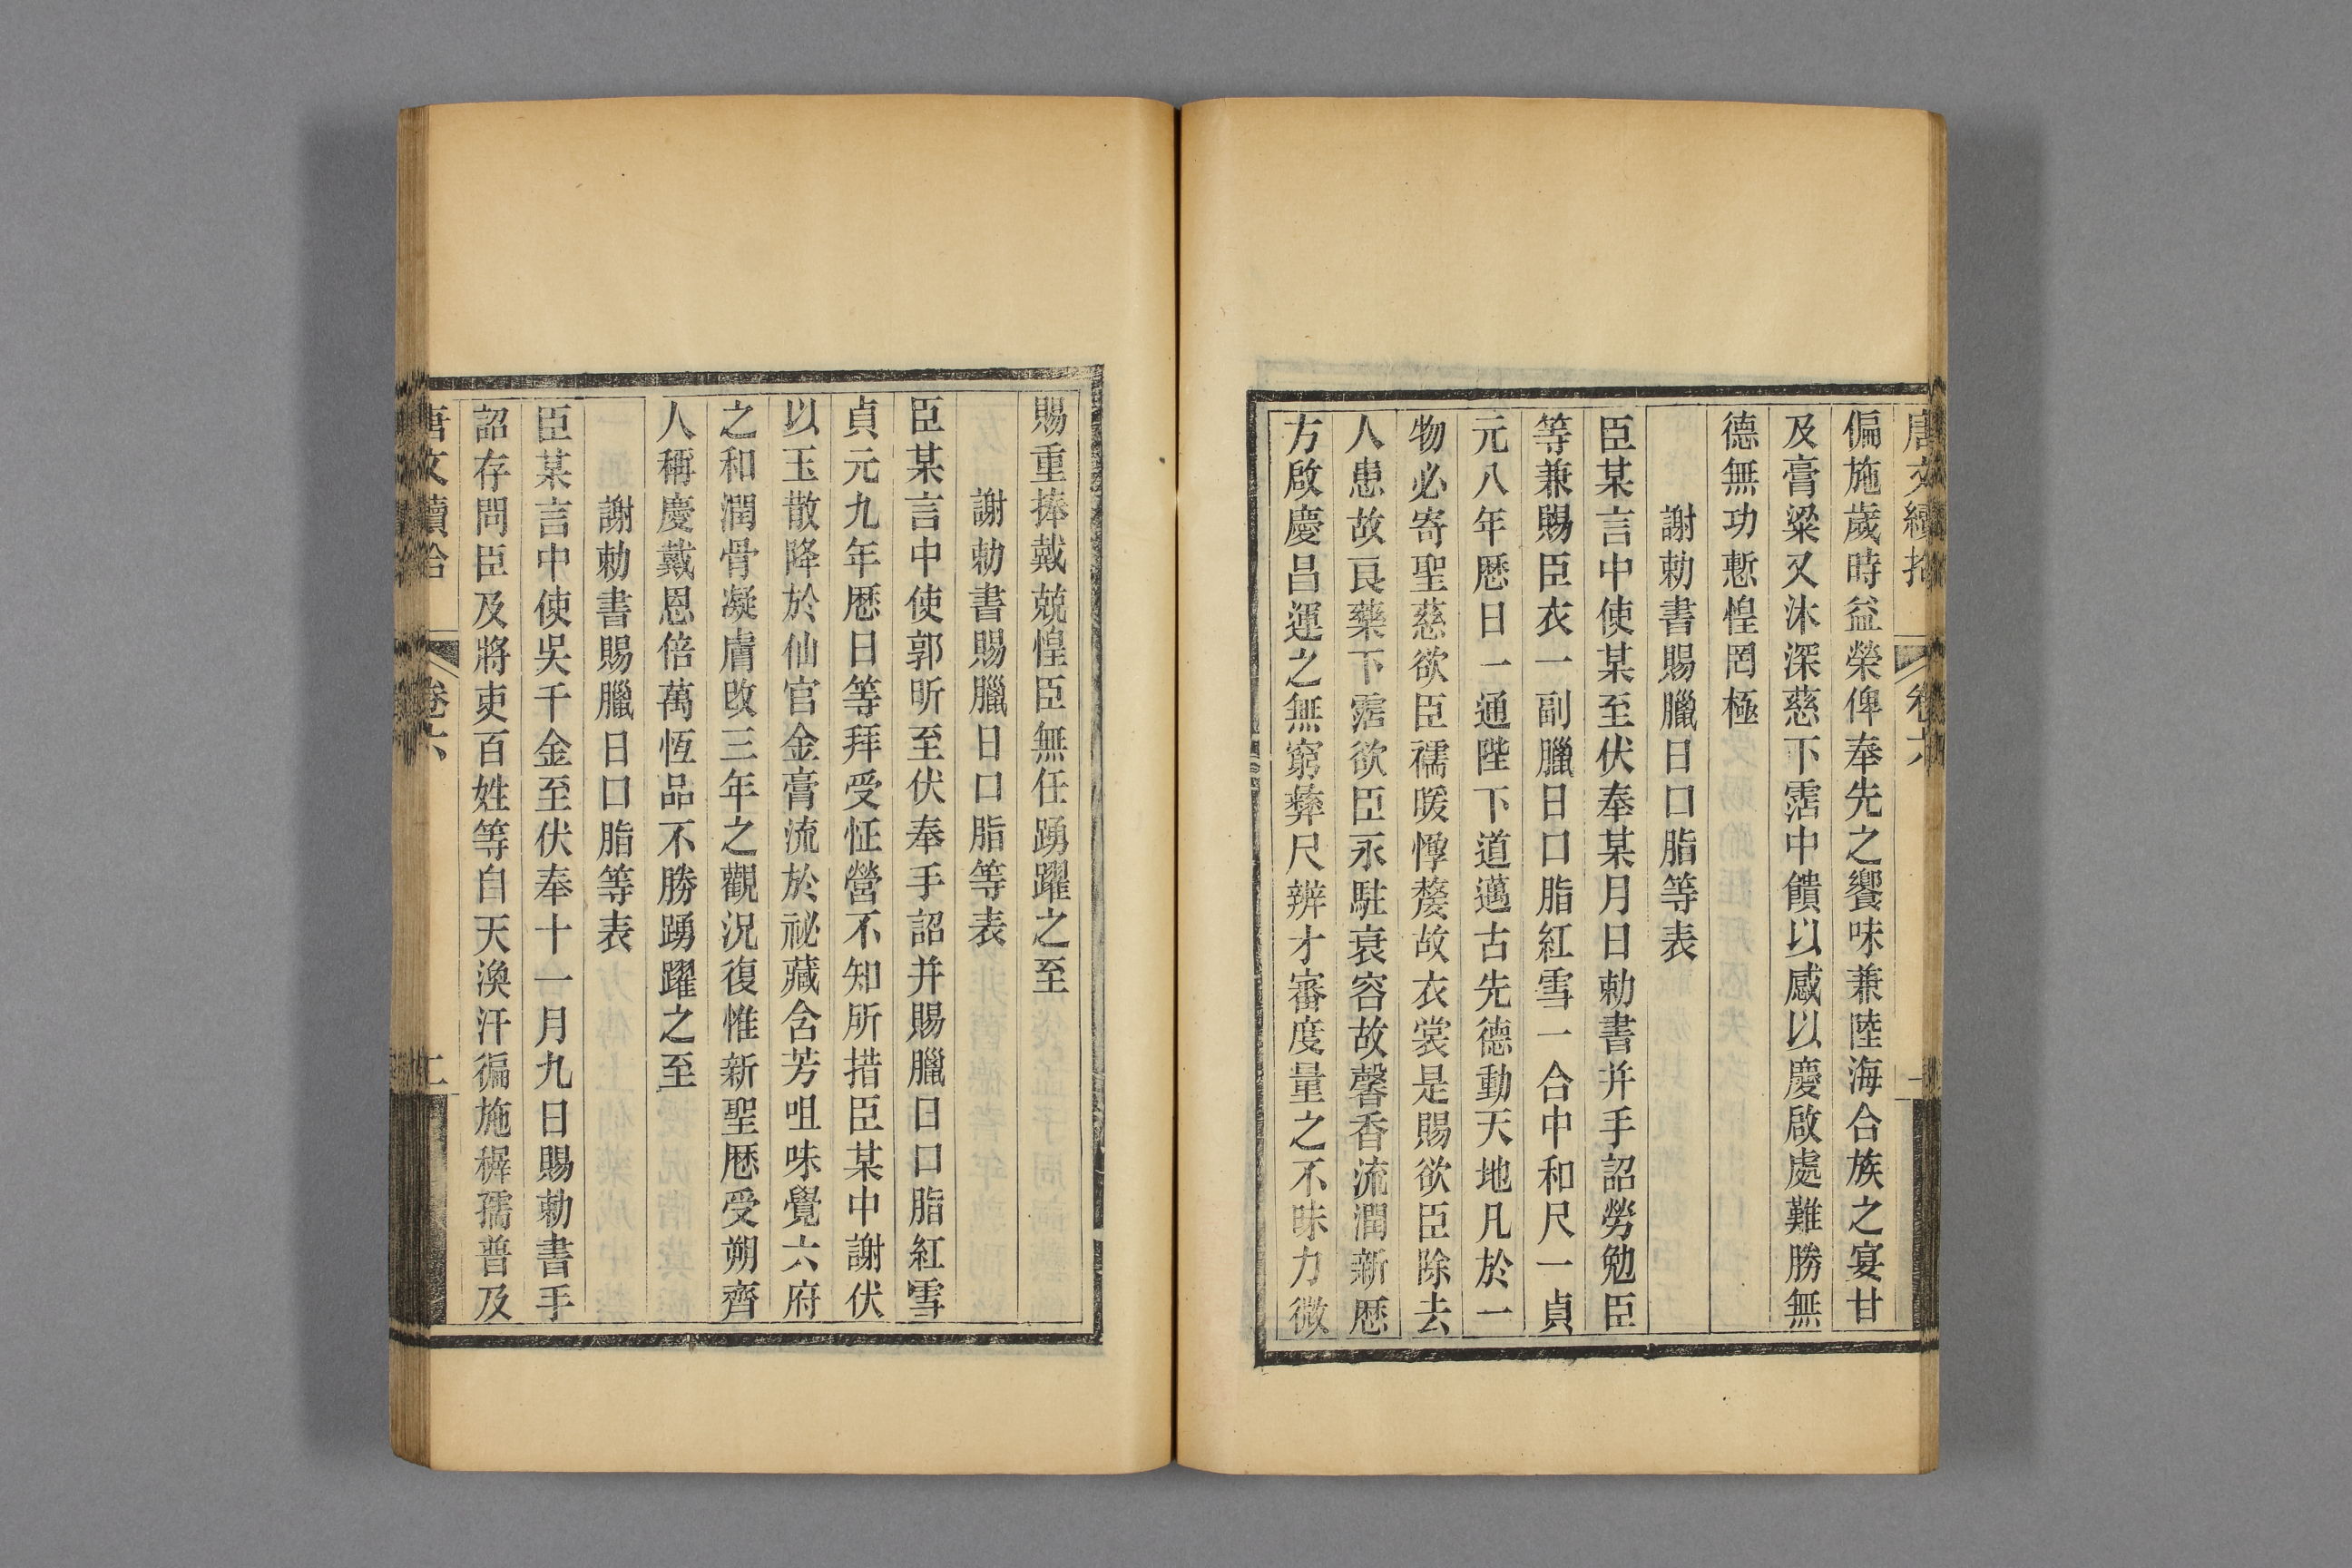 唐文續拾 卷六
偏施歲時益榮俾奉先之饗味兼陸海合族之宴甘
及膏粱又沐深慈下霑中饋以感以慶啟處難勝無
德無功慙惶罔極
謝勅書賜臘日口脂等表
臣某言中使某至伏奉某月日勅書并手詔勞勉臣
等兼賜臣衣一副臘日口脂紅雪一合中和尺一貞
元八年曆日一通陛下道邁古先德動天地凡於一
物必寄聖慈欲臣襦暖惸嫠故衣裳是賜欲臣除去
人患故良藥下霑欲臣永駐衰容故馨香流潤新歷
方啟慶昌運之無窮彝尺辨才審度量之不昧力微
賜重捧戴兢惶臣無任踴躍之至
謝勅書賜臘日口脂等表
臣某言中使郭昕至伏奉手詔并賜臘日口脂紅雪
貞元九年歷日等拜受怔營不知所措臣某中謝伏
以玉散降於仙官金膏流於祕藏含芳咀味覺六府
之和潤骨凝膚改三年之觀況復惟新聖歷受朔齊
人稱慶戴恩倍萬恆品不勝踴躍之至
謝勅書賜臘日口脂等表
臣某言中使吳千金至伏奉十一月九日賜勅書手
詔存問臣及將吏百姓等自天渙汗徧施穉孺普及
唐文續拾 卷六